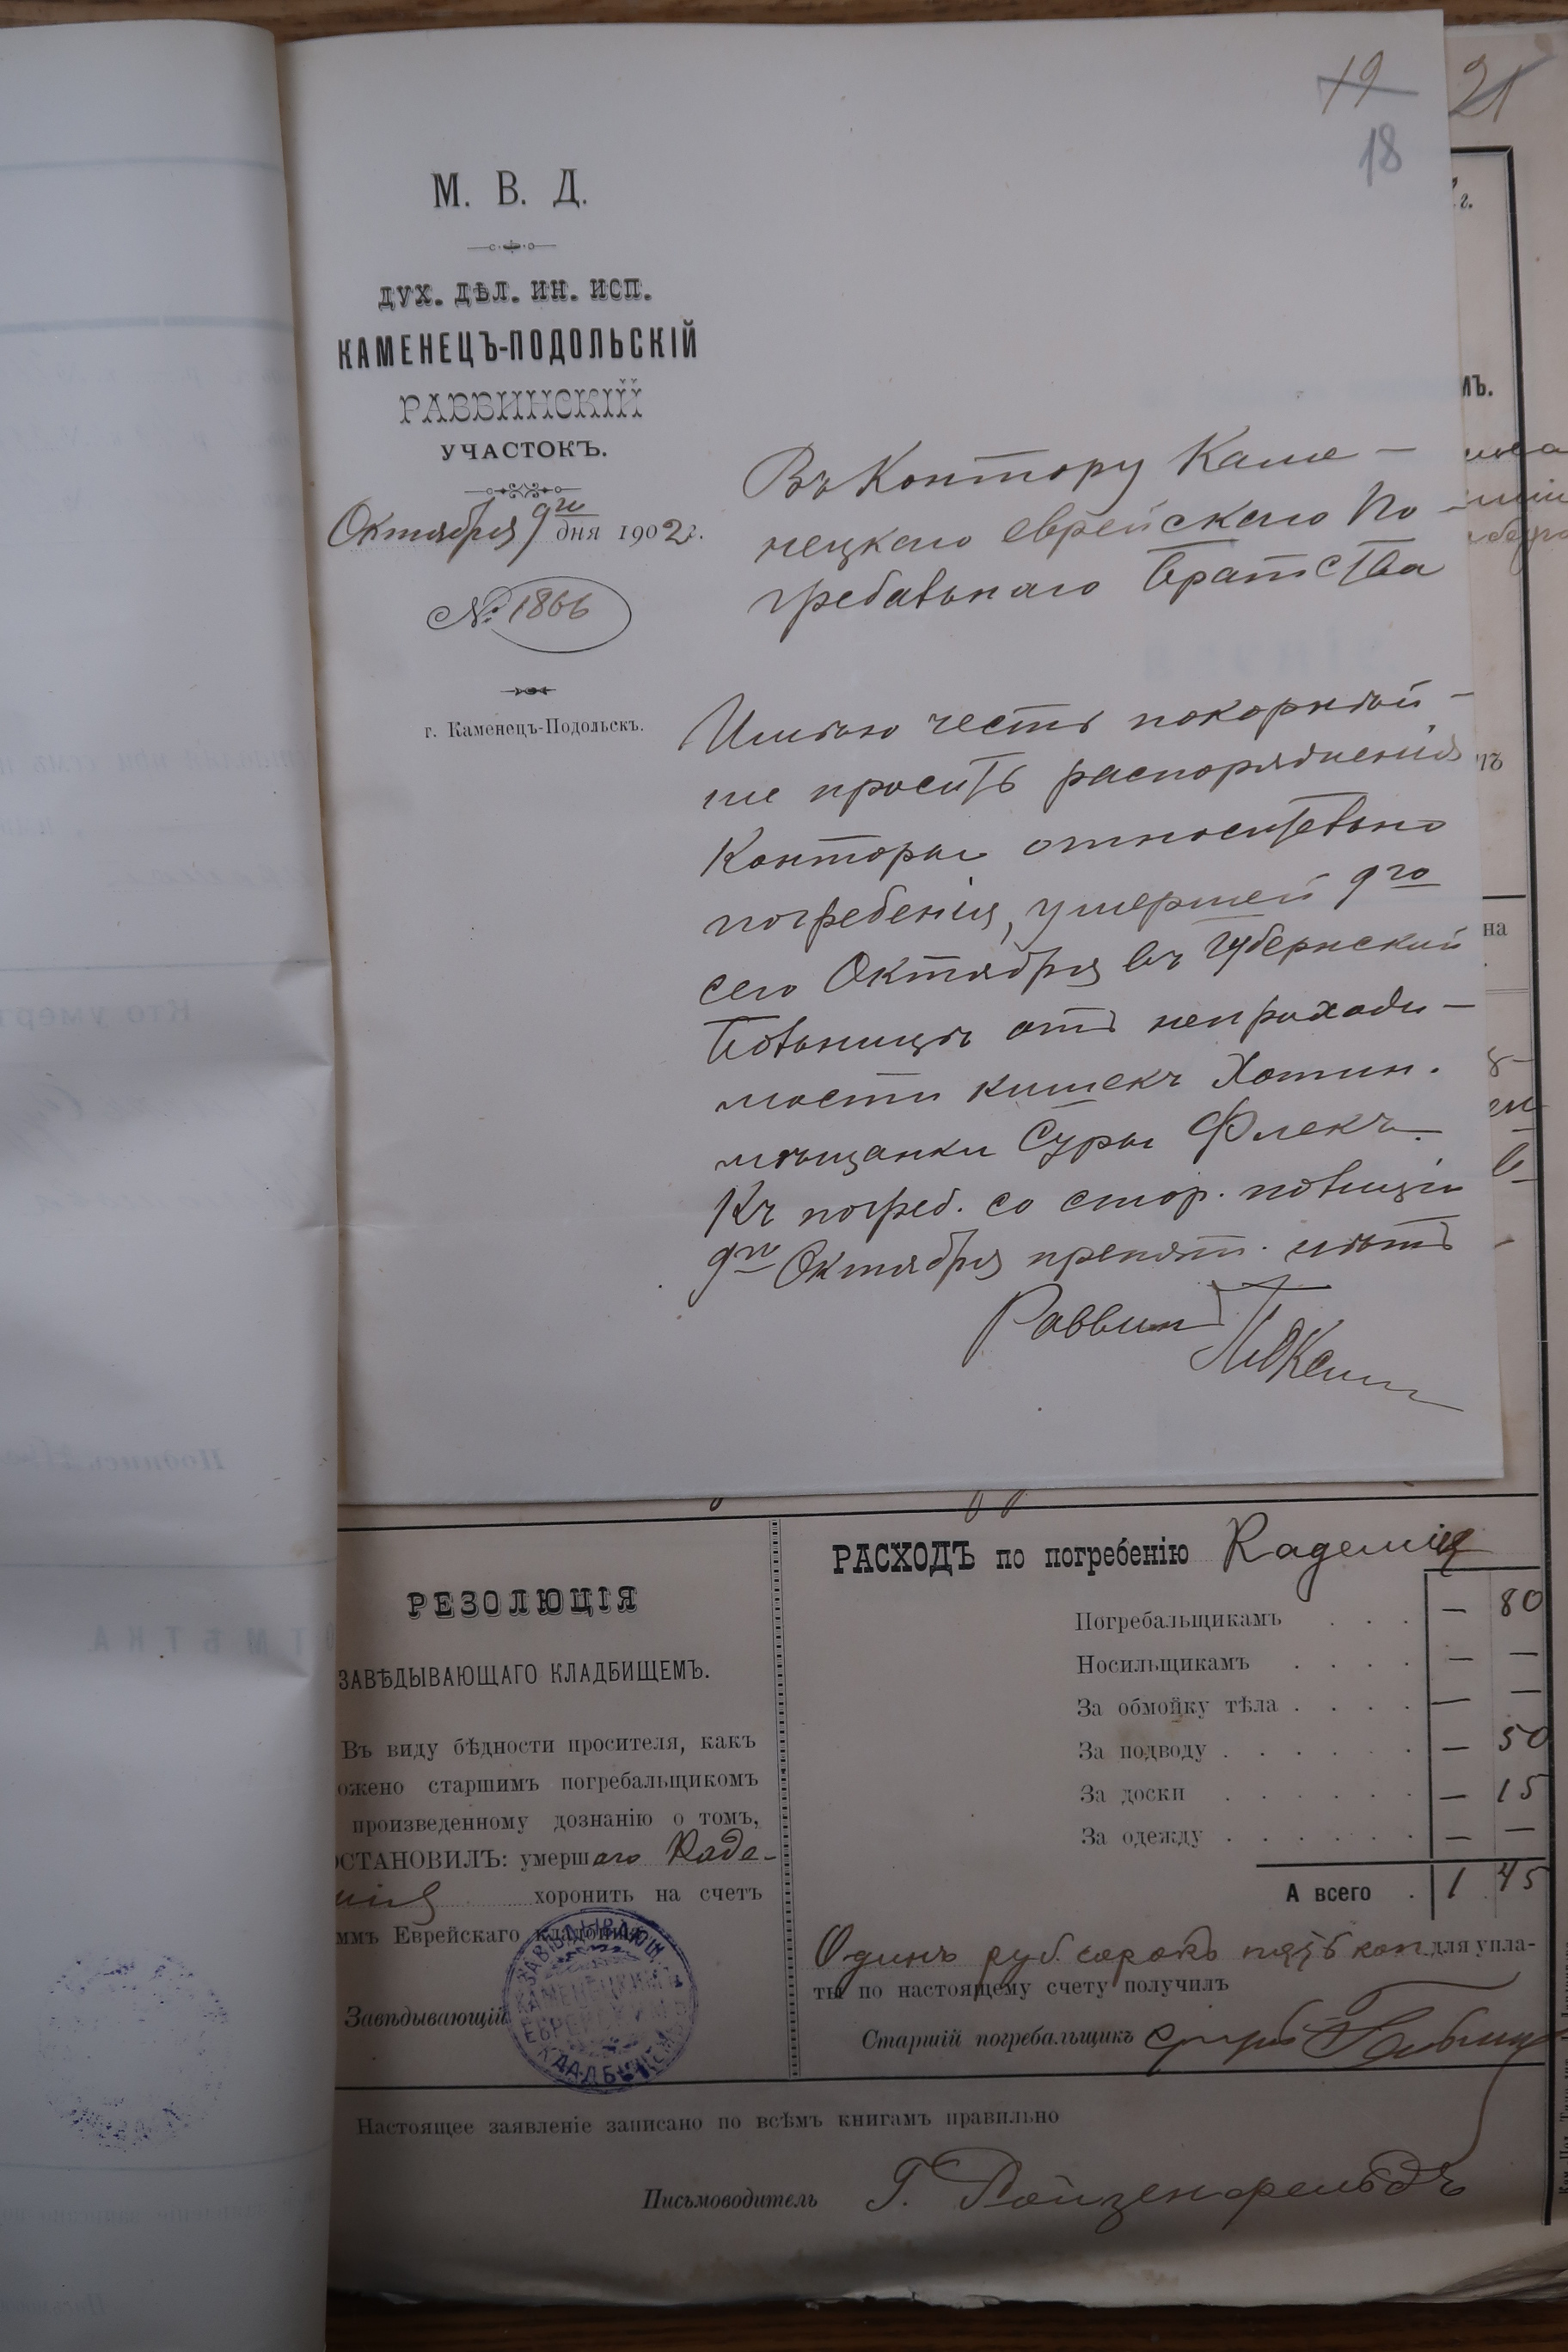 19
18
21
М. В. Д.
ДУХ. ДѢЛ. ИН. ИСП.
КАМЕНЕЦЪ-ПОДОЛЬСКІЙ
РАВВИНСКІЙ
УЧАСТОКЪ.
Октября 9го дня 1902 г.
№ 1866
г. Каменецъ-Подольскъ.
Въ Контору Каме-
нецкаго еврейскаго По-
гребальнаго Братства
Имѣю честь покорнѣй-
ше просить распоряженія
Конторы относительно
погребенія, умершей 9го
сего Октября въ Губернской
Больницѣ отъ непроходи-
мости кишекъ Хотин.
мѣщанки Суры Флекъ.
Къ погреб. со стор. полиціи
9го Октября препят. нѣтъ
Раввинъ
г.
на
РЕЗОЛЮЦІЯ
ЗАВѢДЫВАЮЩАГО КЛАДБИЩЕМЪ.
Въ виду бѣдности просителя, какъ
ожено старшимъ погребальщикомъ
произведенному дознанію о томъ,
ОСТАНОВИЛЪ: умершаго Каде-
хоронить на счетъ
ммъ Еврейскаго кладбища
Завѣдывающій
ЗАВѢДЫВАЮЩ
КАМЕНЕЦКИМЪ
ЕВРЕЙСКИМЪ
КЛАДБИЩЕМЪ
РАСХОДЪ по погребенію
Погребальщикамъ . . . — 80
Носильщикамъ . . . . — —
За обмойку тѣла . . . . — —
За подводу . . . . . . — 50
За доски . . . . . . — 15
За одежду . . . . . . — —
А всего . 1 45
Одинъ руб. сорокъ пять коп для упла-
ты по настоящему счету получилъ
Старшій погребальщикъ
Настоящее заявленіе записано по всѣмъ книгамъ правильно
Письмоводитель Г. Ройзенфельдъ